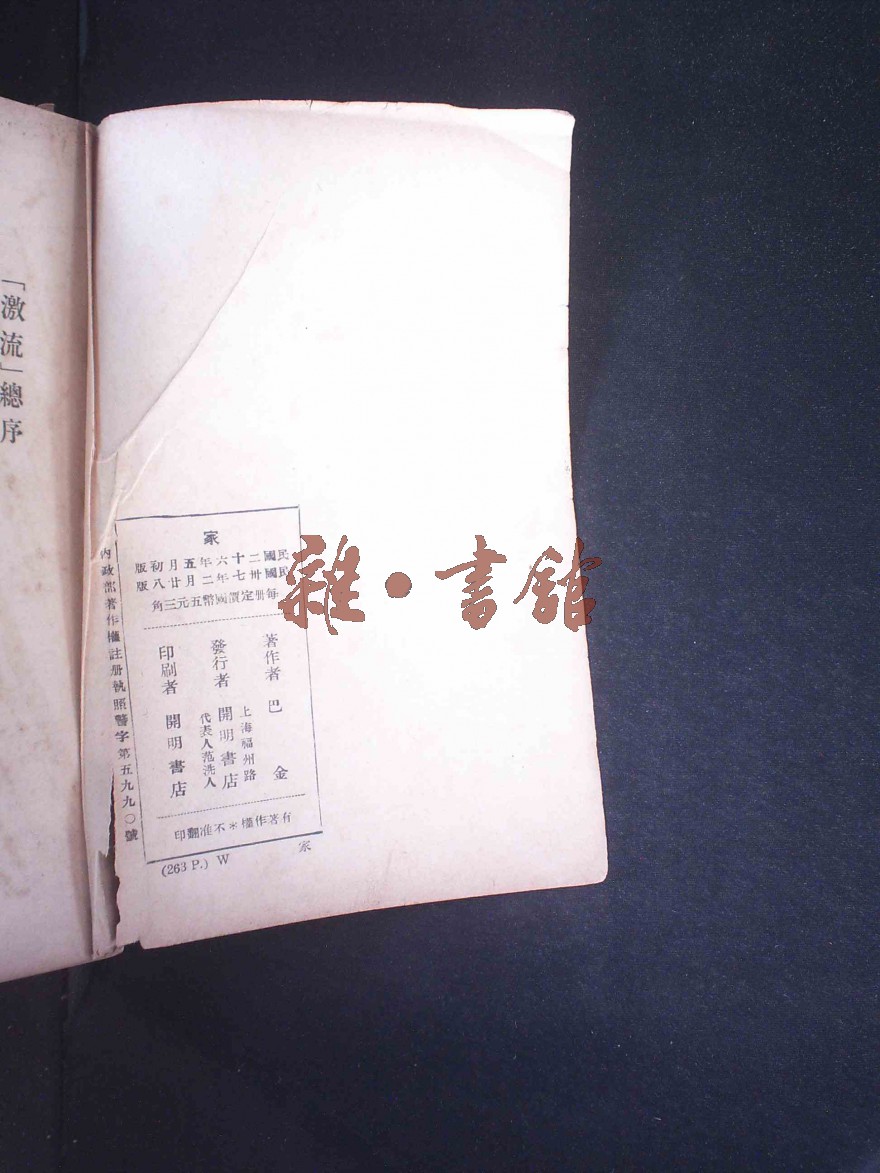 「激流」總序
家
民國二十六年五月初版
民國卅七年二月廿八版
每册定價國幣五元三角
著作者 巴金
發行者
上海福州路
開明書店
代表人范洗人
印刷者 開明書店
有著作權＊不准翻印
內政部著作權註册執照警字第五九九〇號
(263 P.) W
家
雜·書館